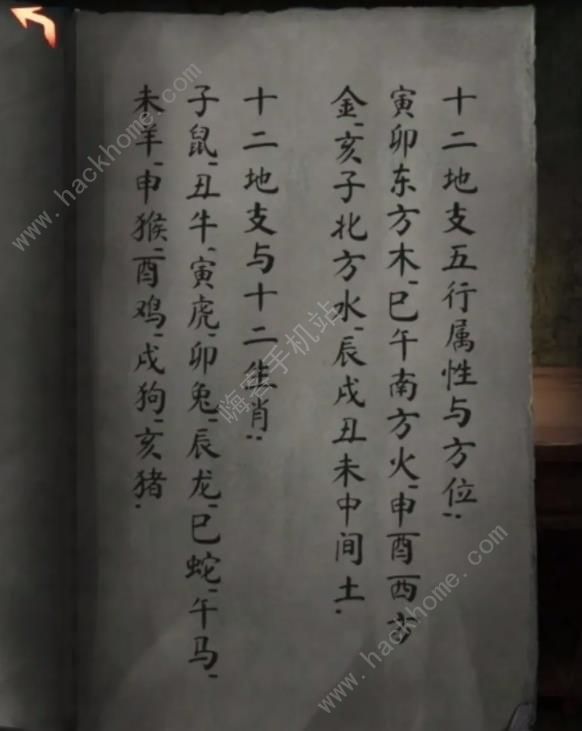 十二地支五行属性与方位:
寅卯东方木、巳午南方火、申酉西方
金、亥子北方水、辰戌丑未中间土.
十二地支与十二生肖:
子鼠、丑牛、寅虎、卯兔、辰龙、巳蛇、午马、
未羊、申猴、酉鸡、戌狗、亥猪.
www.hackhome.com
嗨客手机站
www.hackhome.com